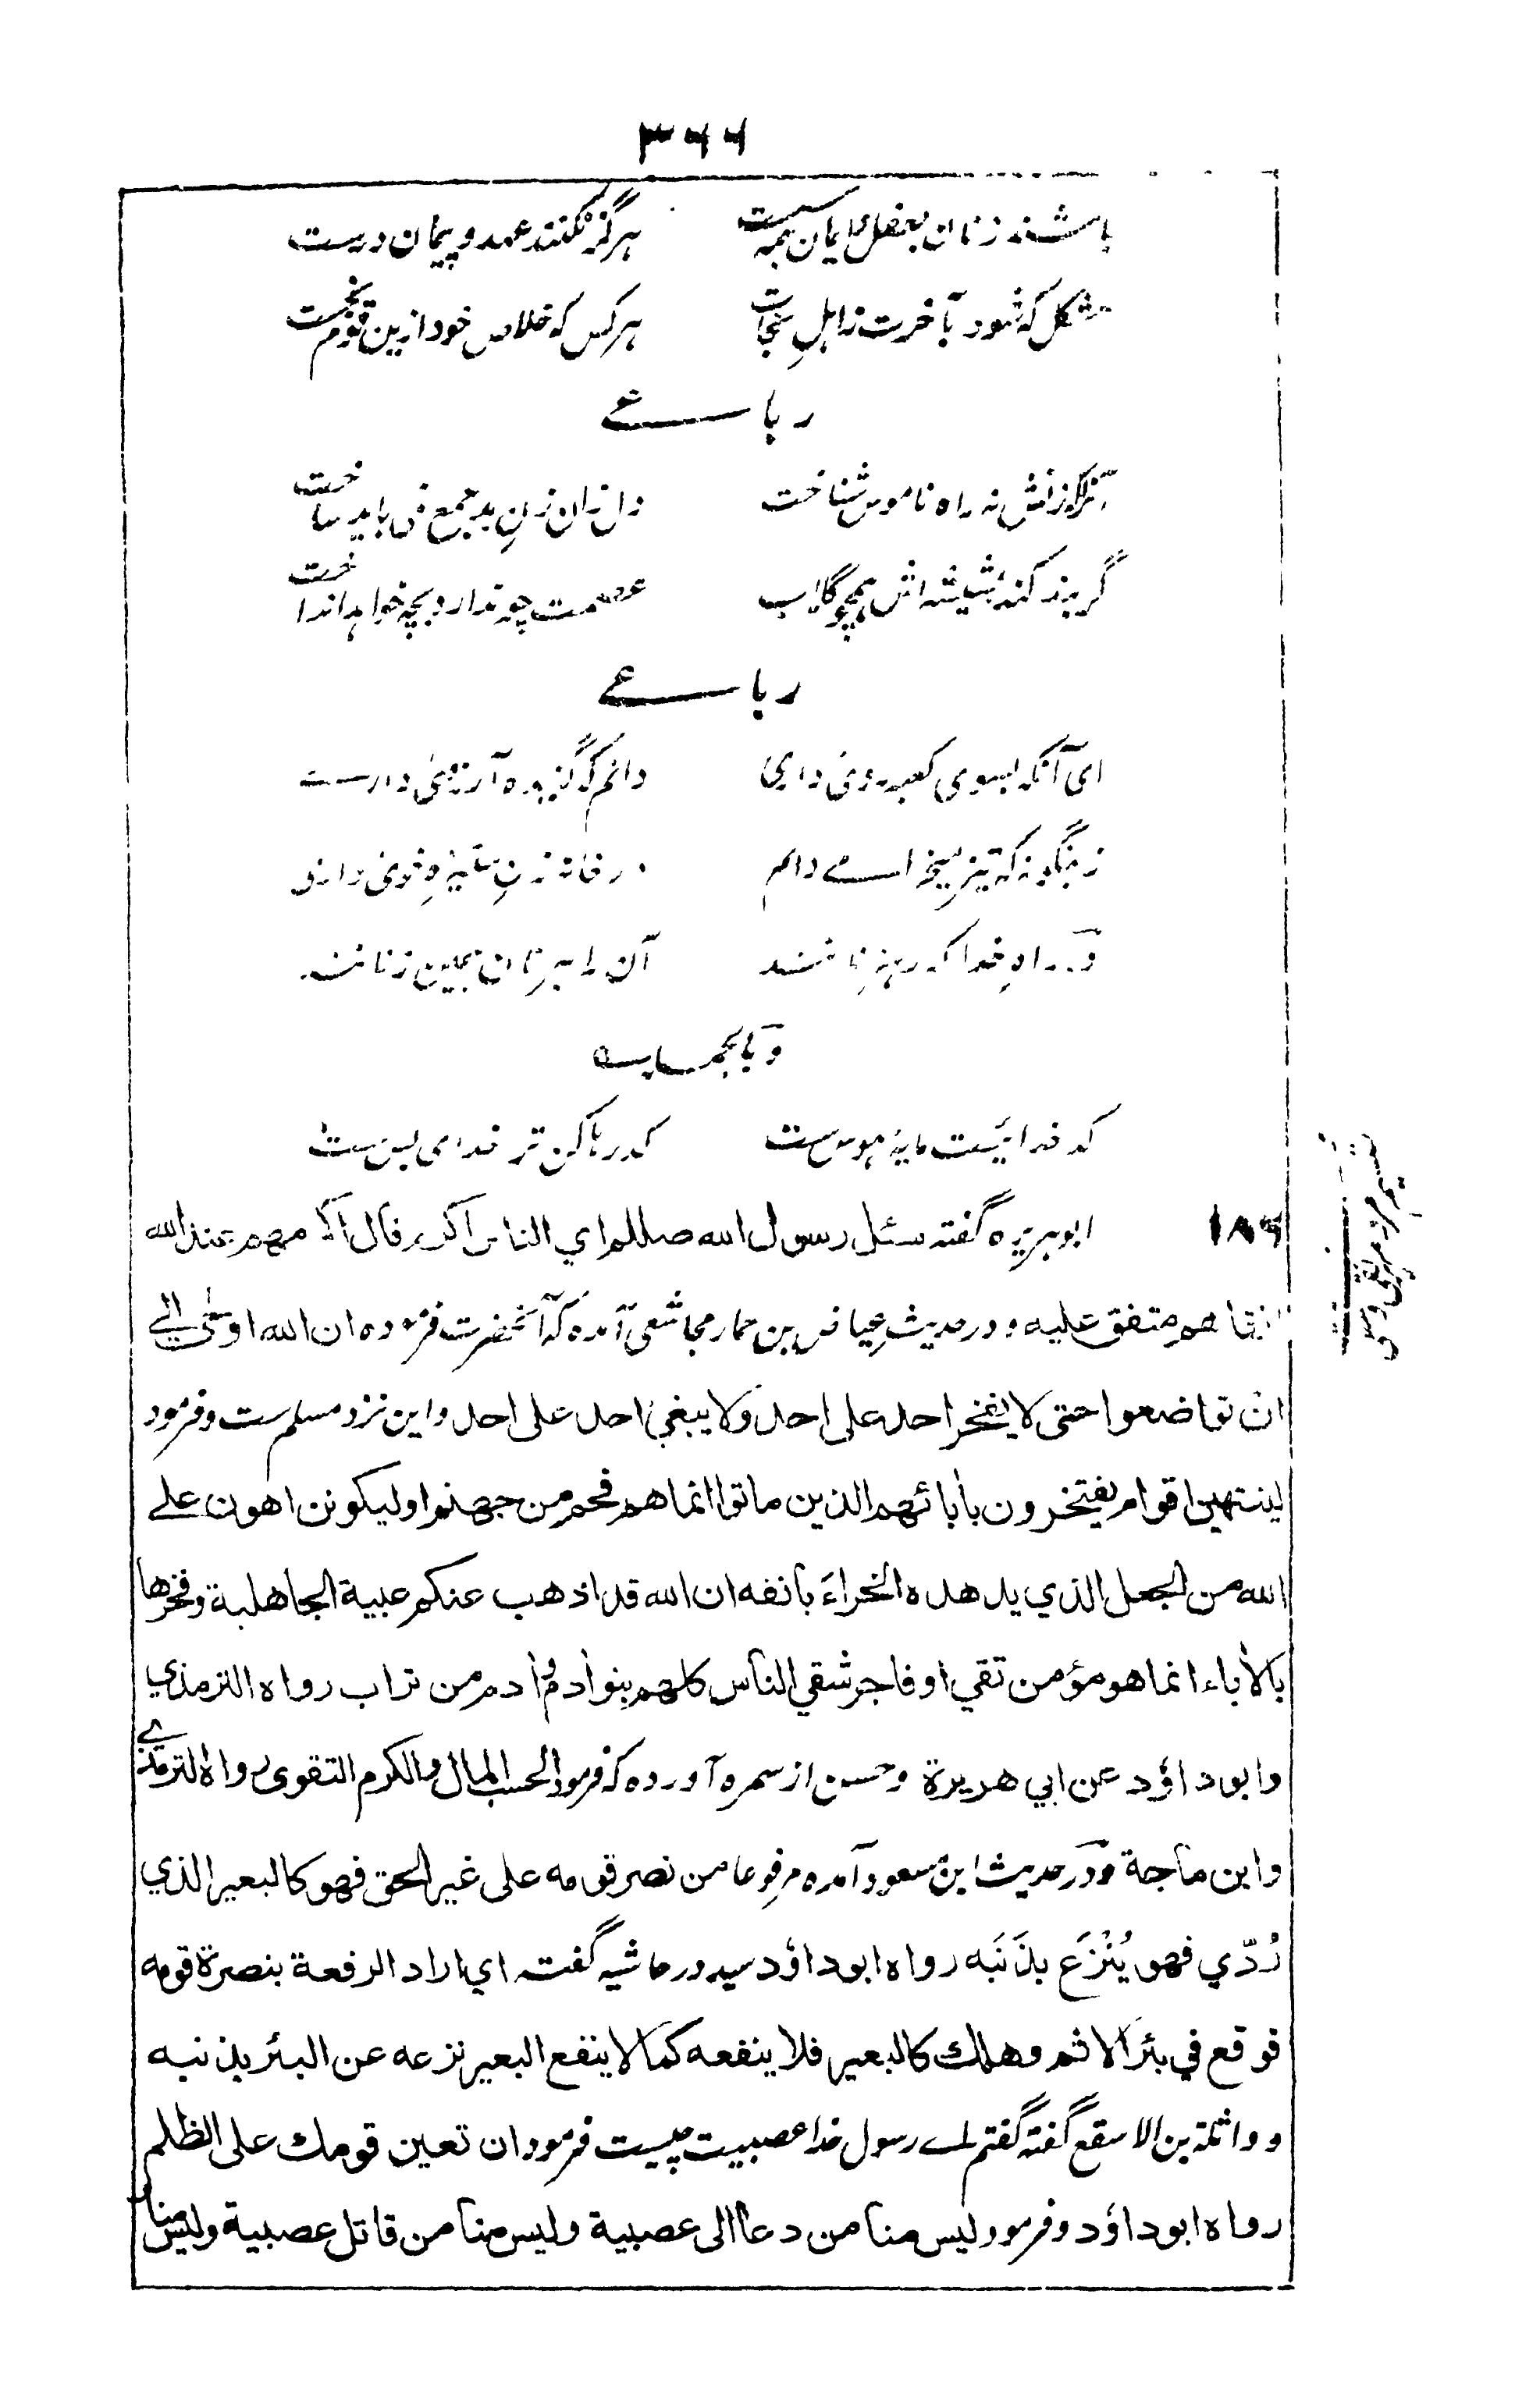 ۳۶۶
باشند زنان بعقل و ایمان همه سست هرگز نکنند عهد و پیمان درست
مشکل که شود بآخرت ز اهلِ نجات هر کس که خلاص خود ازین قوم نجست
رباعے
زنش نه راه ناموس شناخت زنِ بد جمع نمی باید ساخت
گر بند کند بشیشه اش همچو گلاب عصمت چو ندارد بچه خواهد انداخت
رباعے
ای آنکه بسوی کعبه روئی داری دانم که گزیده آرزوئی داری
زینگونه که تیز میخرامے دانم در خانه زنِ ستیزه خوئی داری
در راهِ خدا که رهزنانند آن راهبرنان همین زنانند
وبالجمله
کدخدائیست مایهٔ هوس ست کد رها کن ترا خدای بس ست
۱۸۶ ابوهریره گفته سئل رسول الله صللم اي الناس اكرم قال اكرمهم عند الله
اتقاهم متفق عليه و در حدیث عیاض بن حمار مجاشعی آمده که آنحضرت فرموده ان الله اوحى الي
ان تواضعوا حتى لا يفخر احد على احد ولا يبغي احد على احد و این نزد مسلم ست و فرمود
لينتهين اقوام يفتخرون بأبائهم الذين ماتوا انما هم فحم من جهنم او ليكونن اهون على
الله من الجعل الذي يدهده الخراء بأنفه ان الله قد اذهب عنكم عبية الجاهلية وفخرها
بالأباء انما هو مؤمن تقي او فاجر شقي الناس كلهم بنو أدم وأدم من تراب رواه الترمذي
وابو داؤد عن ابي هريرة و حسن از سمره آورده که فرمود الحسب المال والكرم التقوى رواه الترمذي
وابن ماجة و در حدیث ابن مسعود آمده مرفوعا من نصر قومه على غير الحق فهو كالبعير الذي
رُدّي فهو يُنْزَع بذَنَبه رواه ابو داؤد سید در حاشیه گفته اي اراد الرفعة بنصرة قومه
فوقع في بئر الاثم وهلك كالبعير فلا ينفعه كما لا ينفع البعير نزعه عن البئر بذنبه
و واثلة بن الاسقع گفته گفتم اے رسول خدا عصبیت چیست فرمود ان تعين قومك على الظلم
رواه ابو داؤد و فرمود ليس منا من دعا الى عصبية وليس منا من قاتل عصبية وليس منا